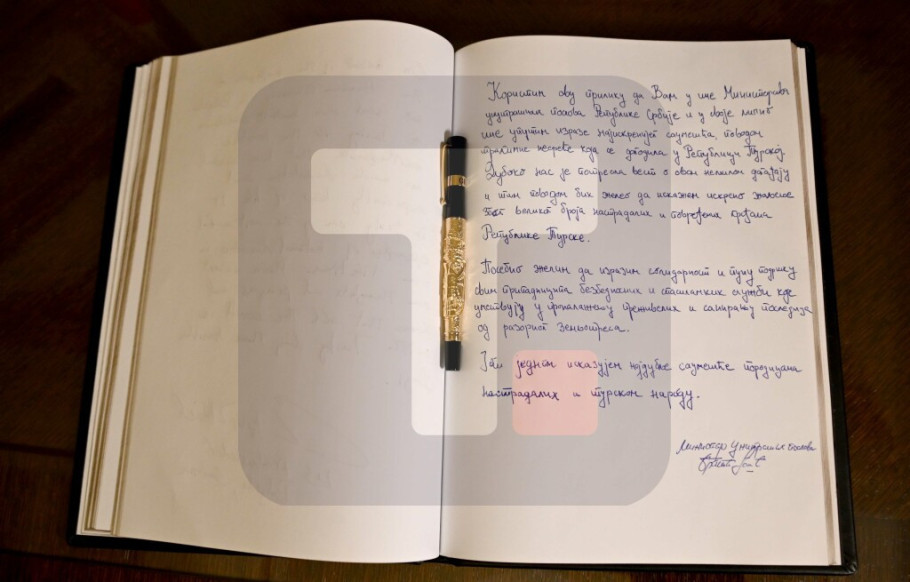 Користим ову прилику да Вам у име Министарства
унутрашњих послова Републике Србије и у своје лично
име упутим изразе најискренијег саучешћа, поводом
трагичне несреће која се догодила у Републици Турској.
Дубоко нас је потресла вест о овом немилом догађају
и тим поводом бих желео да искажем искрено жаљење
због великог броја настрадалих и повређених грађана
Републике Турске.
Посебно желим да изразим солидарност и пуну подршку
свим припадницима безбедносних и спасилачких служби које
учествују у проналажењу преживелих и санирању последица
од разорног земљотреса.
Још једном исказујем најдубље саучешће породицама
настрадалих и турском народу.
Министар унутрашњих послова